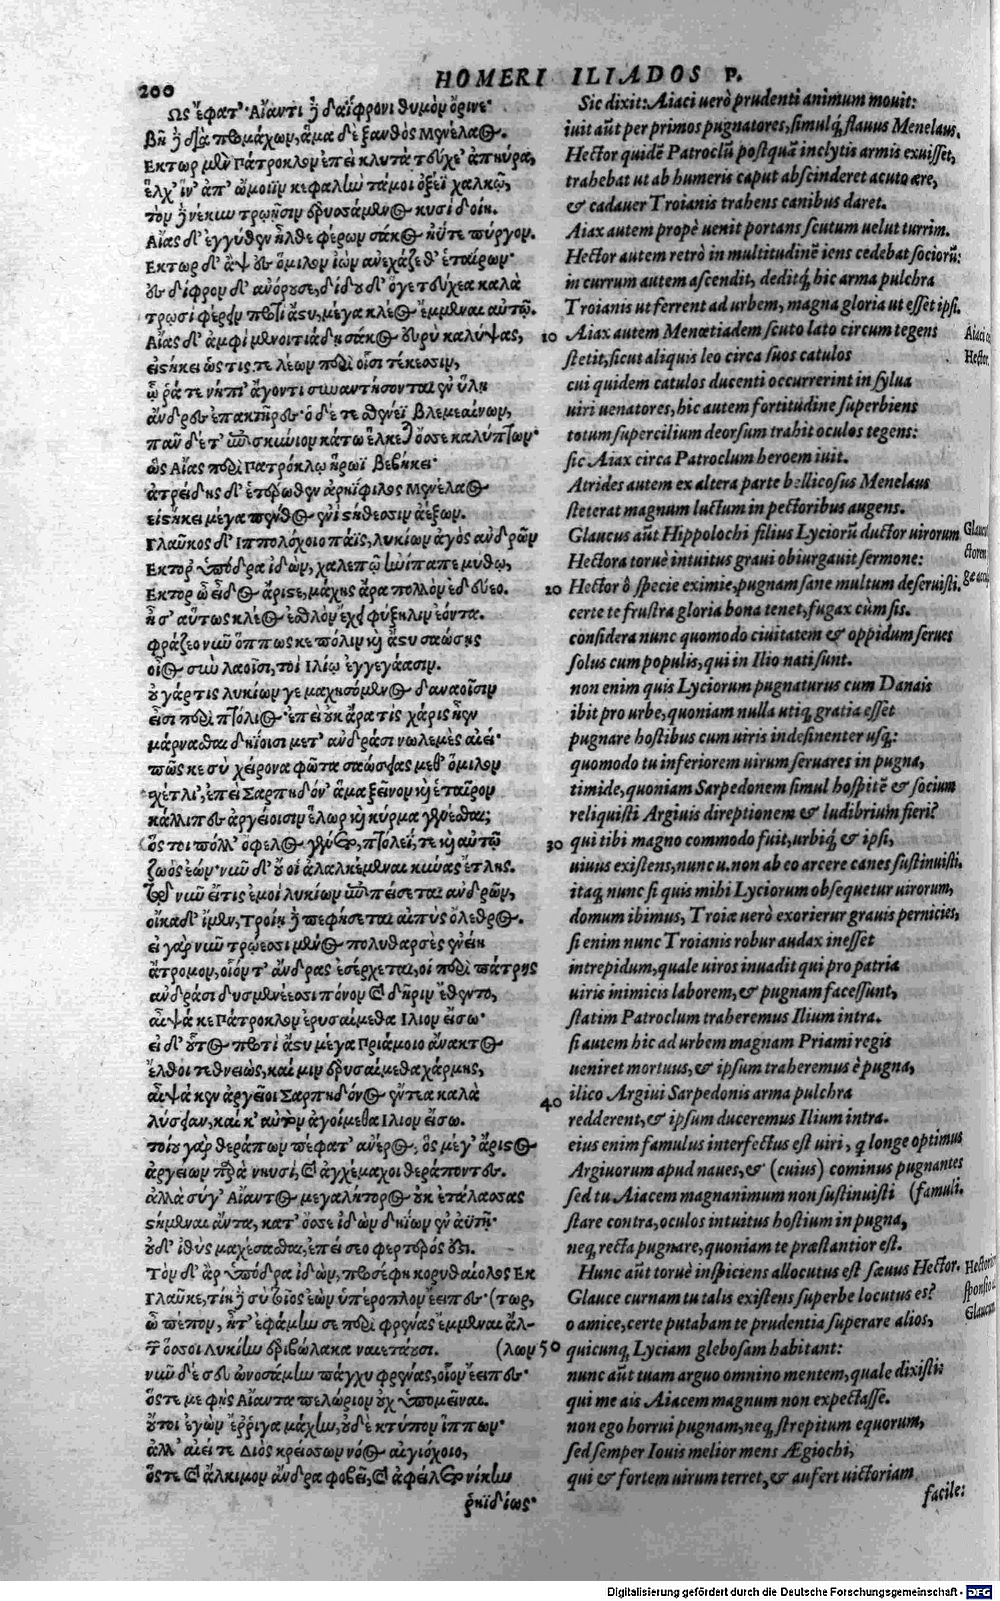 200
HOMERI ILIADOS P.
Ὣς ἔφατ'· Αἴαντι ϳ δαΐφρονι θυμὸν ὄρινε·
Βῆ ϳ διὰ προμάχων, ἅμα δὲ ξανθὸς Μενέλαος.
Εκτωρ μὲν Πάτροκλον ἐπεὶ κλυτὰ τεύχε' ἀπηύρα,
ἕλχ' ἵν' ἀπ' ὤμοιϊν κεφαλὴν τάμοι ὀξέϊ χαλκῷ,
τὸν ϳ νέκυν τρῳῇσιν ἐρυσσάμενος κυσὶ δοίη.
Αἴας δ' ἐγγύθεν ἦλθε φέρων σάκος ἠΰτε πύργον.
Εκτωρ δ' ἂψ ἐς ὅμιλον ἰὼν ἀνεχάζεθ' ἑταίρων·
ἐς δίφρον δ' ἀνόρουσε, δίδου δ' ὅγε τεύχεα καλὰ
τρωσὶ φέρειν προτὶ ἄστυ, μέγα κλέος ἔμμεναι αὐτῷ.
Αἴας δ' ἀμφὶ μενοιτιάδῃ σάκος εὐρὺ καλύψας,
εἱστήκει ὥς τίς τε λέων περὶ οἷσι τέκεσσιν,
ᾧ ῥά τε νήπι' ἄγοντι συναντήσονται ἐν ὕλῃ
ἄνδρες ἐπακτῆρες· ὁ δέ τε σθένεϊ βλεμεαίνων,
πᾶν δέ τ' ἐπισκύνιον κάτω ἕλκεται ὄσσε καλύπτων·
ὣς Αἴας περὶ Πατρόκλῳ ἥρωϊ βεβήκει·
ἀτρείδης δ' ἑτέρωθεν ἀρηΐφιλος Μενέλαος
εἱστήκει μέγα πένθος ἐνὶ στήθεσσιν ἀέξων.
Γλαῦκος δ' Ιππολόχοιο πάϊς, λυκίων ἀγὸς ἀνδρῶν
Εκτορ' ὑπόδρα ἰδὼν, χαλεπῷ ἠνίπαπε μύθῳ,
Εκτορ ὦ εἶδος ἄριστε, μάχης ἄρα πολλὸν ἐδεύεο.
ἦ σ' αὔτως κλέος ἐσθλὸν ἔχει φύξηλιν ἐόντα.
φράζεο νῦν ὅππως κε πόλιν καὶ ἄστυ σαώσῃς
οἶος σὺν λαοῖσι, τοὶ Ιλίῳ ἐγγεγάασιν.
οὐ γάρ τις λυκίων γε μαχησόμενος δαναοῖσιν
εἶσι περὶ πτόλιος· ἐπεὶ οὐκ ἄρα τὶς χάρις ἦεν
μάρνασθαι δηΐοισι μετ' ἀνδράσι νωλεμὲς αἰεί·
πῶς κε σὺ χείρονα φῶτα σαώσειας μεθ' ὅμιλον
σχέτλι', ἐπεὶ Σαρπηδόν' ἅμα ξεῖνον καὶ ἑταῖρον
κάλλιπες ἀργείοισιν ἕλωρ καὶ κύρμα γενέσθαι;
ὅς τοι πόλλ' ὄφελος γένετο, πτόλεΐ, τε καὶ αὐτῷ
ζωὸς ἐών· νῦν δ' οὔ οἱ ἀλαλκέμεναι κύνας ἔτλης.
τῷ νῦν εἴ τις ἐμοὶ λυκίων ἐπιπείσεται ἀνδρῶν,
οἴκαδ' ἴμεν, Τροίῃ ϳ πεφήσεται αἰπὺς ὄλεθρος.
εἰ γὰρ νῦν τρώεσσι μένος πολυθαρσὲς ἐνείη
ἄτρομον, οἷόν τ' ἄνδρας ἐσέρχεται, οἳ περὶ πάτρης
ἀνδράσι δυσμενέεσσι πόνον καὶ δῆριν ἔθεντο,
αἶψά κε Πάτροκλον ἐρυσαίμεθα Ιλιον εἴσω·
εἰ δ' οὗτος προτὶ ἄστυ μέγα Πριάμοιο ἄνακτος
ἔλθοι τεθνειὼς, καί μιν ἐρυσαίμεθα χάρμης,
αἶψά κεν ἀργεῖοι Σαρπηδόνος ἔντεα καλὰ
λύσειαν, καί κ' αὐτὸν ἀγοίμεθα Ιλιον εἴσω.
τοίου γὰρ θεράπων πέφατ' ἀνέρος, ὃς μέγ' ἄριστος
ἀργείων παρὰ νηυσὶ, καὶ ἀγχέμαχοι θεράποντες.
ἀλλὰ σύγ' Αἴαντος μεγαλήτορος οὐκ ἐτάλασσας
στήμεναι ἄντα, κατ' ὄσσε ἰδὼν δηΐων ἐν ἀϋτῇ·
οὐδ' ἰθὺς μαχέσασθαι, ἐπεὶ σέο φέρτερός ἐστι.
Τὸν δ' ἂρ ὑπόδρα ἰδὼν, προσέφη κορυθαίολος Εκ
Γλαῦκε, τίη ϳ σὺ τοῖος ἐὼν ὑπέροπλον ἔειπες· (τωρ,
ὦ πέπον, ἦτ' ἐφάμην σε περὶ φρένας ἔμμεναι ἄλ-
τῶν ὅσσοι Λυκίην ἐριβώλακα ναιετάουσι. (λων
νῦν δέ σευ ὠνοσάμην πάγχυ φρένας, οἷον ἔειπες·
ὅστε με φῂς Αἴαντα πελώριον οὐχ ὑπομεῖναι.
οὔτοι ἐγὼν ἔρριγα μάχην, οὐδὲ κτύπον ἵππων·
ἀλλ' αἰεί τε Διὸς κρείσσων νόος αἰγιόχοιο,
ὅστε καὶ ἄλκιμον ἄνδρα φοβεῖ, καὶ ἀφείλετο νίκην
ῥηϊδίως·
Sic dixit: Aiaci uerò prudenti animum mouit:
iuit aũt per primos pugnatores, simulq́; flauus Menelaus.
Hector quidẽ Patroclũ postquã inclytis armis exuisset,
trahebat ut ab humeris caput abscinderet acuto ære,
& cadauer Troianis trahens canibus daret.
Aiax autem propè uenit portans scutum uelut turrim.
Hector autem retrò in multitudinẽ iens cedebat sociorũ:
in currum autem ascendit, deditq́; hic arma pulchra
Troianis ut ferrent ad urbem, magna gloria ut esset ipsi.
10 Aiax autem Menœtiadem scuto lato circum tegens
stetit, sicut aliquis leo circa suos catulos
cui quidem catulos ducenti occurrerint in sylua
uiri uenatores, hic autem fortitudine superbiens
totum supercilium deorsum trahit oculos tegens:
sic Aiax circa Patroclum heroem iuit.
Atrides autem ex altera parte bellicosus Menelaus
steterat magnum luctum in pectoribus augens.
Glaucus aũt Hippolochi filius Lyciorũ ductor uirorum
Hectora toruè intuitus graui obiurgauit sermone:
20 Hector ô specie eximie, pugnam sane multum deseruisti.
certe te frustra gloria bona tenet, fugax cùm sis.
considera nunc quomodo ciuitatem & oppidum serues
solus cum populis, qui in Ilio nati sunt.
non enim quis Lyciorum pugnaturus cum Danais
ibit pro urbe, quoniam nulla utiq; gratia esset
pugnare hostibus cum uiris indesinenter usq;:
quomodo tu inferiorem uirum seruares in pugna,
timide, quoniam Sarpedonem simul hospitẽ & socium
reliquisti Argiuis direptionem & ludibrium fieri?
30 qui tibi magno commodo fuit, urbiq́; & ipsi,
uiuus existens, nunc u. non ab eo arcere canes sustinuisti.
itaq; nunc si quis mihi Lyciorum obsequetur uirorum,
domum ibimus, Troiæ uerò exorierur grauis pernicies,
si enim nunc Troianis robur audax inesset
intrepidum, quale uiros inuadit qui pro patria
uiris inimicis laborem, & pugnam facessunt,
statim Patroclum traheremus Ilium intra.
si autem hic ad urbem magnam Priami regis
ueniret mortuus, & ipsum traheremus è pugna,
40 ilico Argiui Sarpedonis arma pulchra
redderent, & ipsum duceremus Ilium intra.
eius enim famulus interfectus est uiri, q longe optimus
Argiuorum apud naues, & (cuius) cominus pugnantes
sed tu Aiacem magnanimum non sustinuisti (famuli.
stare contra, oculos intuitus hostium in pugna,
neq; recta pugnare, quoniam te præstantior est.
Hunc aũt toruè inspiciens allocutus est sæuus Hector.
Glauce cur nam tu talis existens superbe locutus es?
o amice, certe putabam te prudentia superare alios,
50 quicunq; Lyciam glebosam habitant:
nunc aũt tuam arguo omnino mentem, quale dixisti
qui me ais Aiacem magnum non expectasse.
non ego horrui pugnam, neq; strepitum equorum,
sed semper Iouis melior mens Ægiochi,
qui & fortem uirum terret, & aufert uictoriam
facile:
Hector.
Digitalisierung gefördert durch die Deutsche Forschungsgemeinschaft - DFG